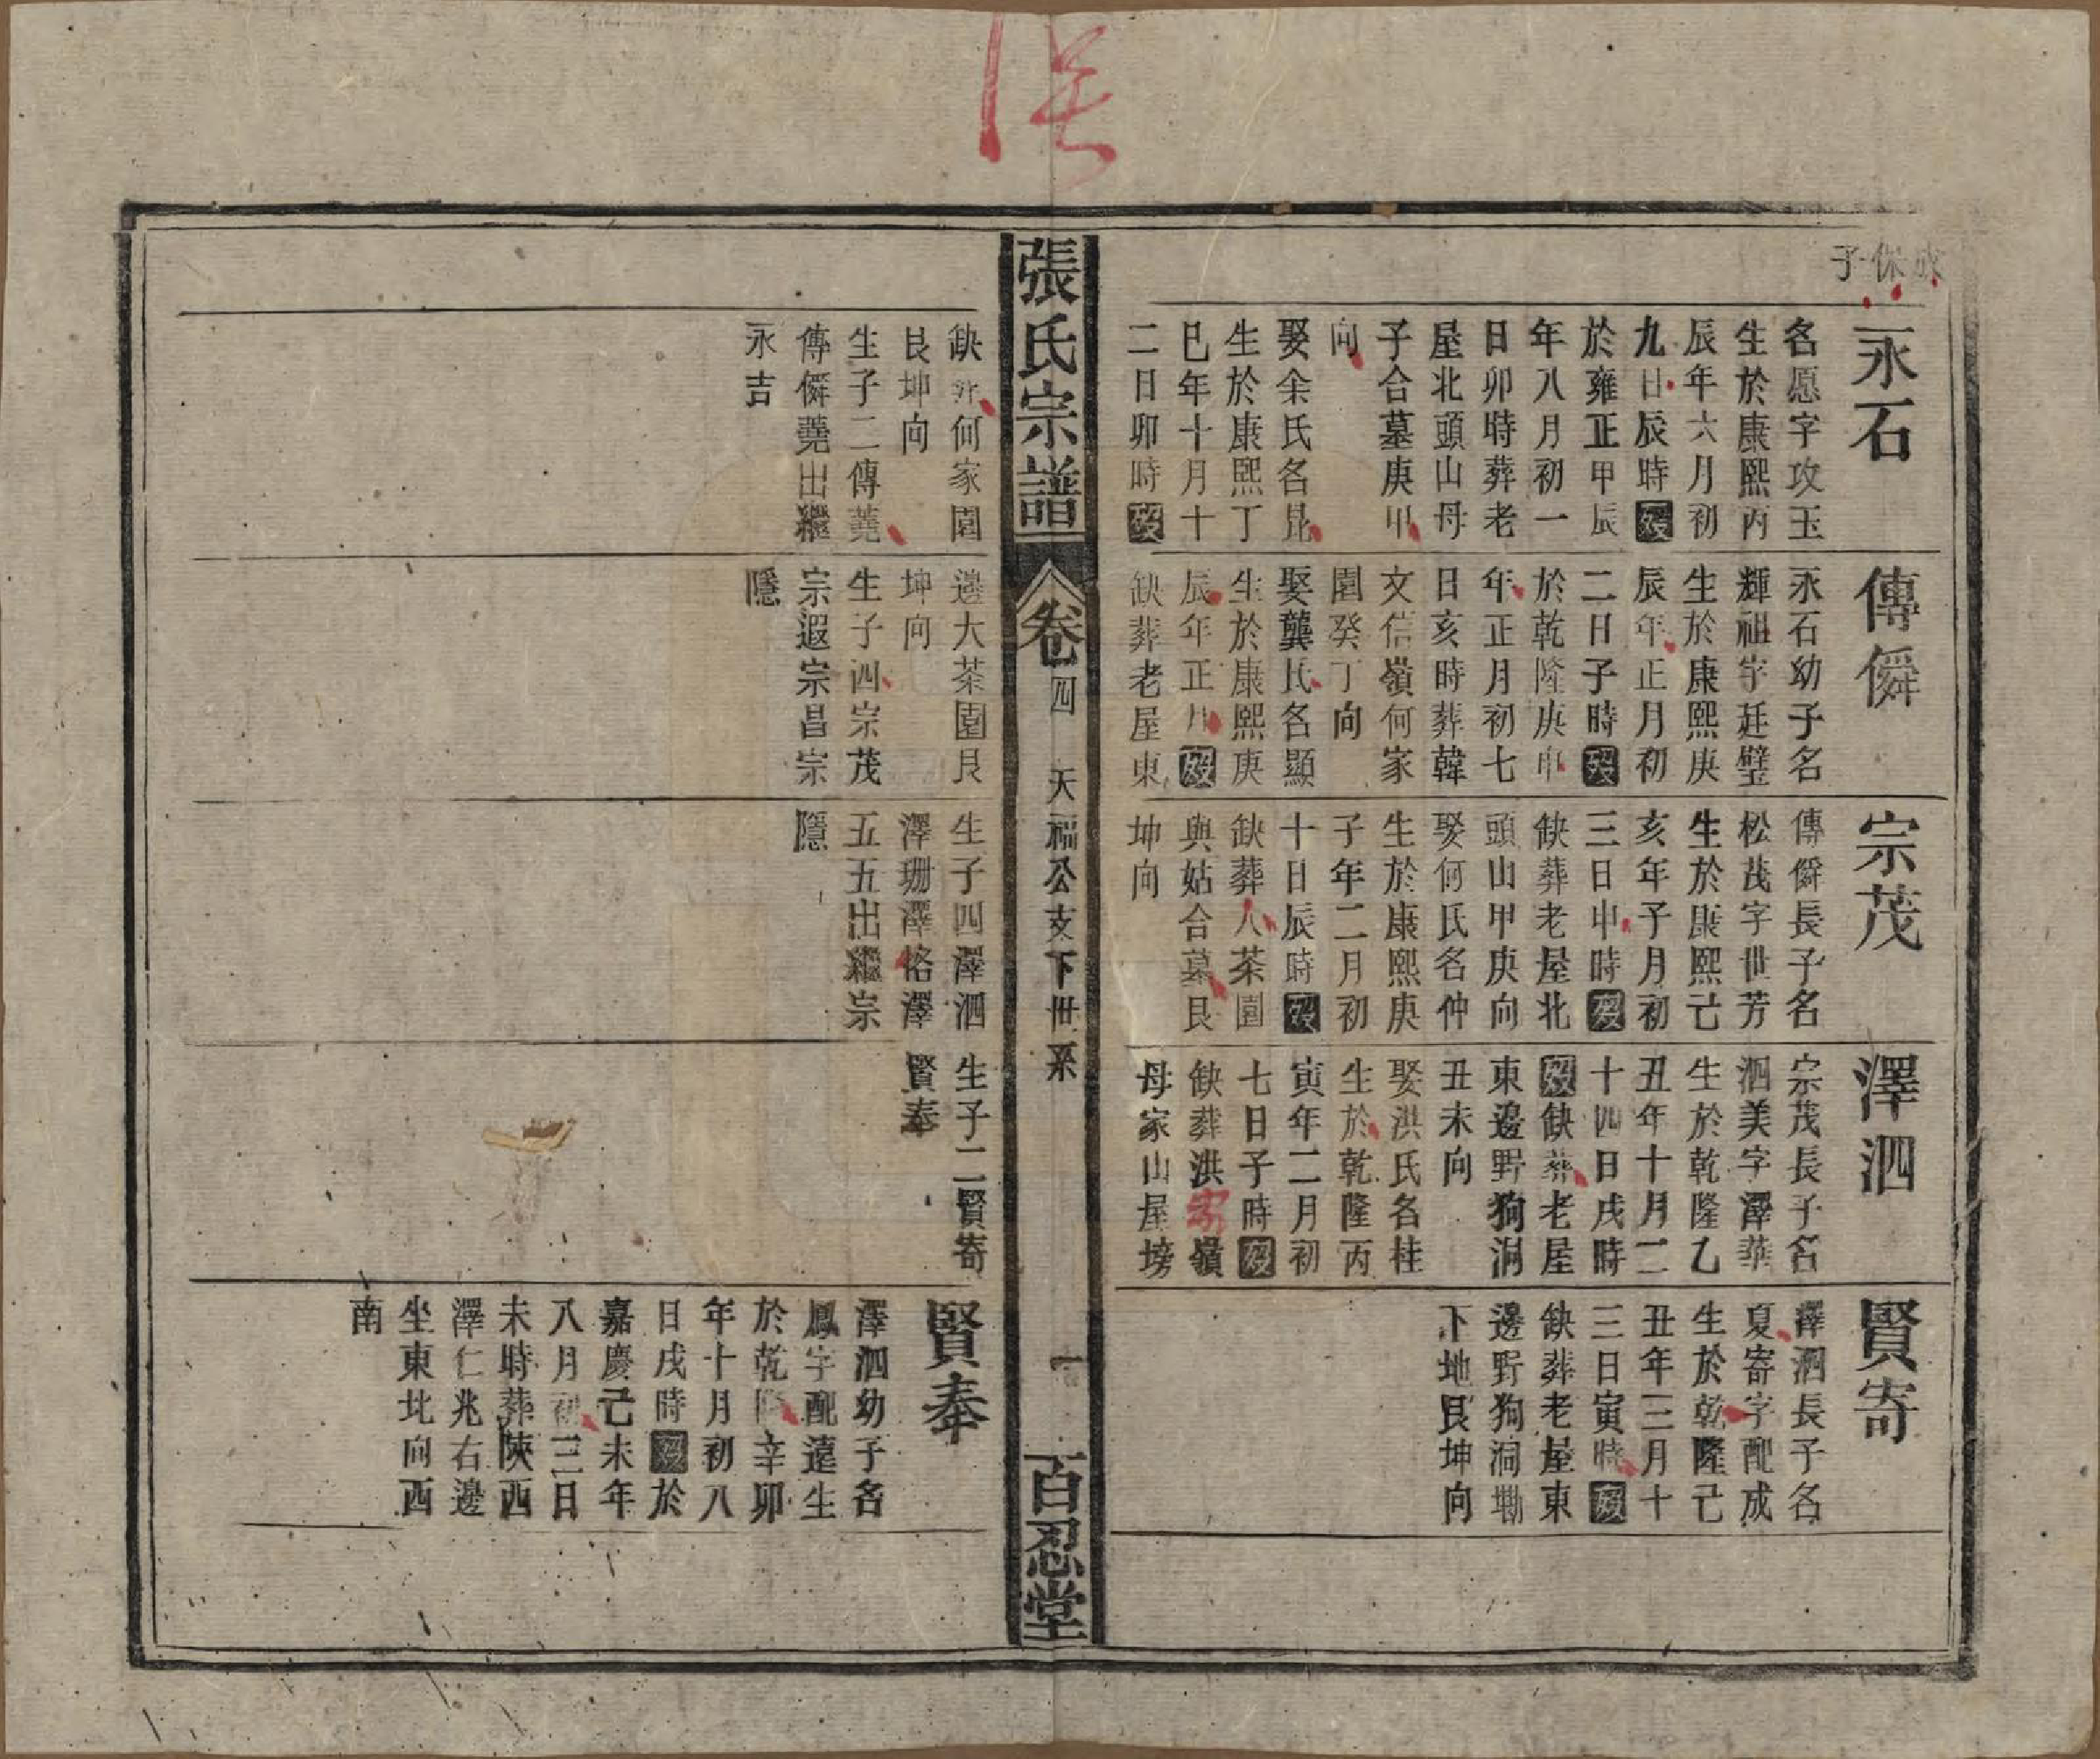 成保子
永石
名愿字攻玉
生於康熙丙
辰年六月初
九日辰時歿
於雍正甲辰
年八月初一
日卯時葬老
屋北頭山母
子合墓庚甲
向
娶余氏名昆
生於康熙丁
巳年十月十
二日卯時歿
傳僢
永石幼子名
輝祖字廷璧
生於康熙庚
辰年正月初
二日子時歿
於乾隆庚申
年正月初七
日亥時葬韓
文信嶺何家
園癸丁向
娶龔氏名顯
生於康熙庚
辰年正月歿
缺葬老屋東
宗茂
傳僢長子名
松茂字世芳
生於康熙己
亥年子月初
三日申時歿
缺葬老屋北
頭山甲庚向
娶何氏名仲
生於康熙庚
子年二月初
十日辰時歿
缺葬八茶園
與姑合墓艮
坤向
澤泗
宗茂長子名
泗美字澤華
生於乾隆乙
丑年十月二
十四日戌時
歿缺葬老屋
東邊野狗洞
丑未向
娶洪氏名桂
生於乾隆丙
寅年二月初
七日子時歿
缺葬洪家嶺
母家山屋塝
賢寄
澤泗長子名
夏寄字配成
生於乾隆己
丑年三月十
三日寅時歿
缺葬老屋東
邊野狗洞墈
下地艮坤向
張氏宗譜
卷四
天福公支下世系
一
百忍堂
缺葬何家園
艮坤向
生子二傳蕘
傳僢蕘出繼
永吉
邊大茶園艮
坤向
生子四宗茂
宗遐宗昌宗
隱
生子四澤泗
澤珊澤格澤
五五出繼宗
隱
生子二賢寄
賢奉
賢奉
澤泗幼子名
鳳字配遠生
於乾隆辛卯
年十月初八
日戌時歿於
嘉慶己未年
八月初三日
未時葬陝西
澤仁兆右邊
坐東北向西
南